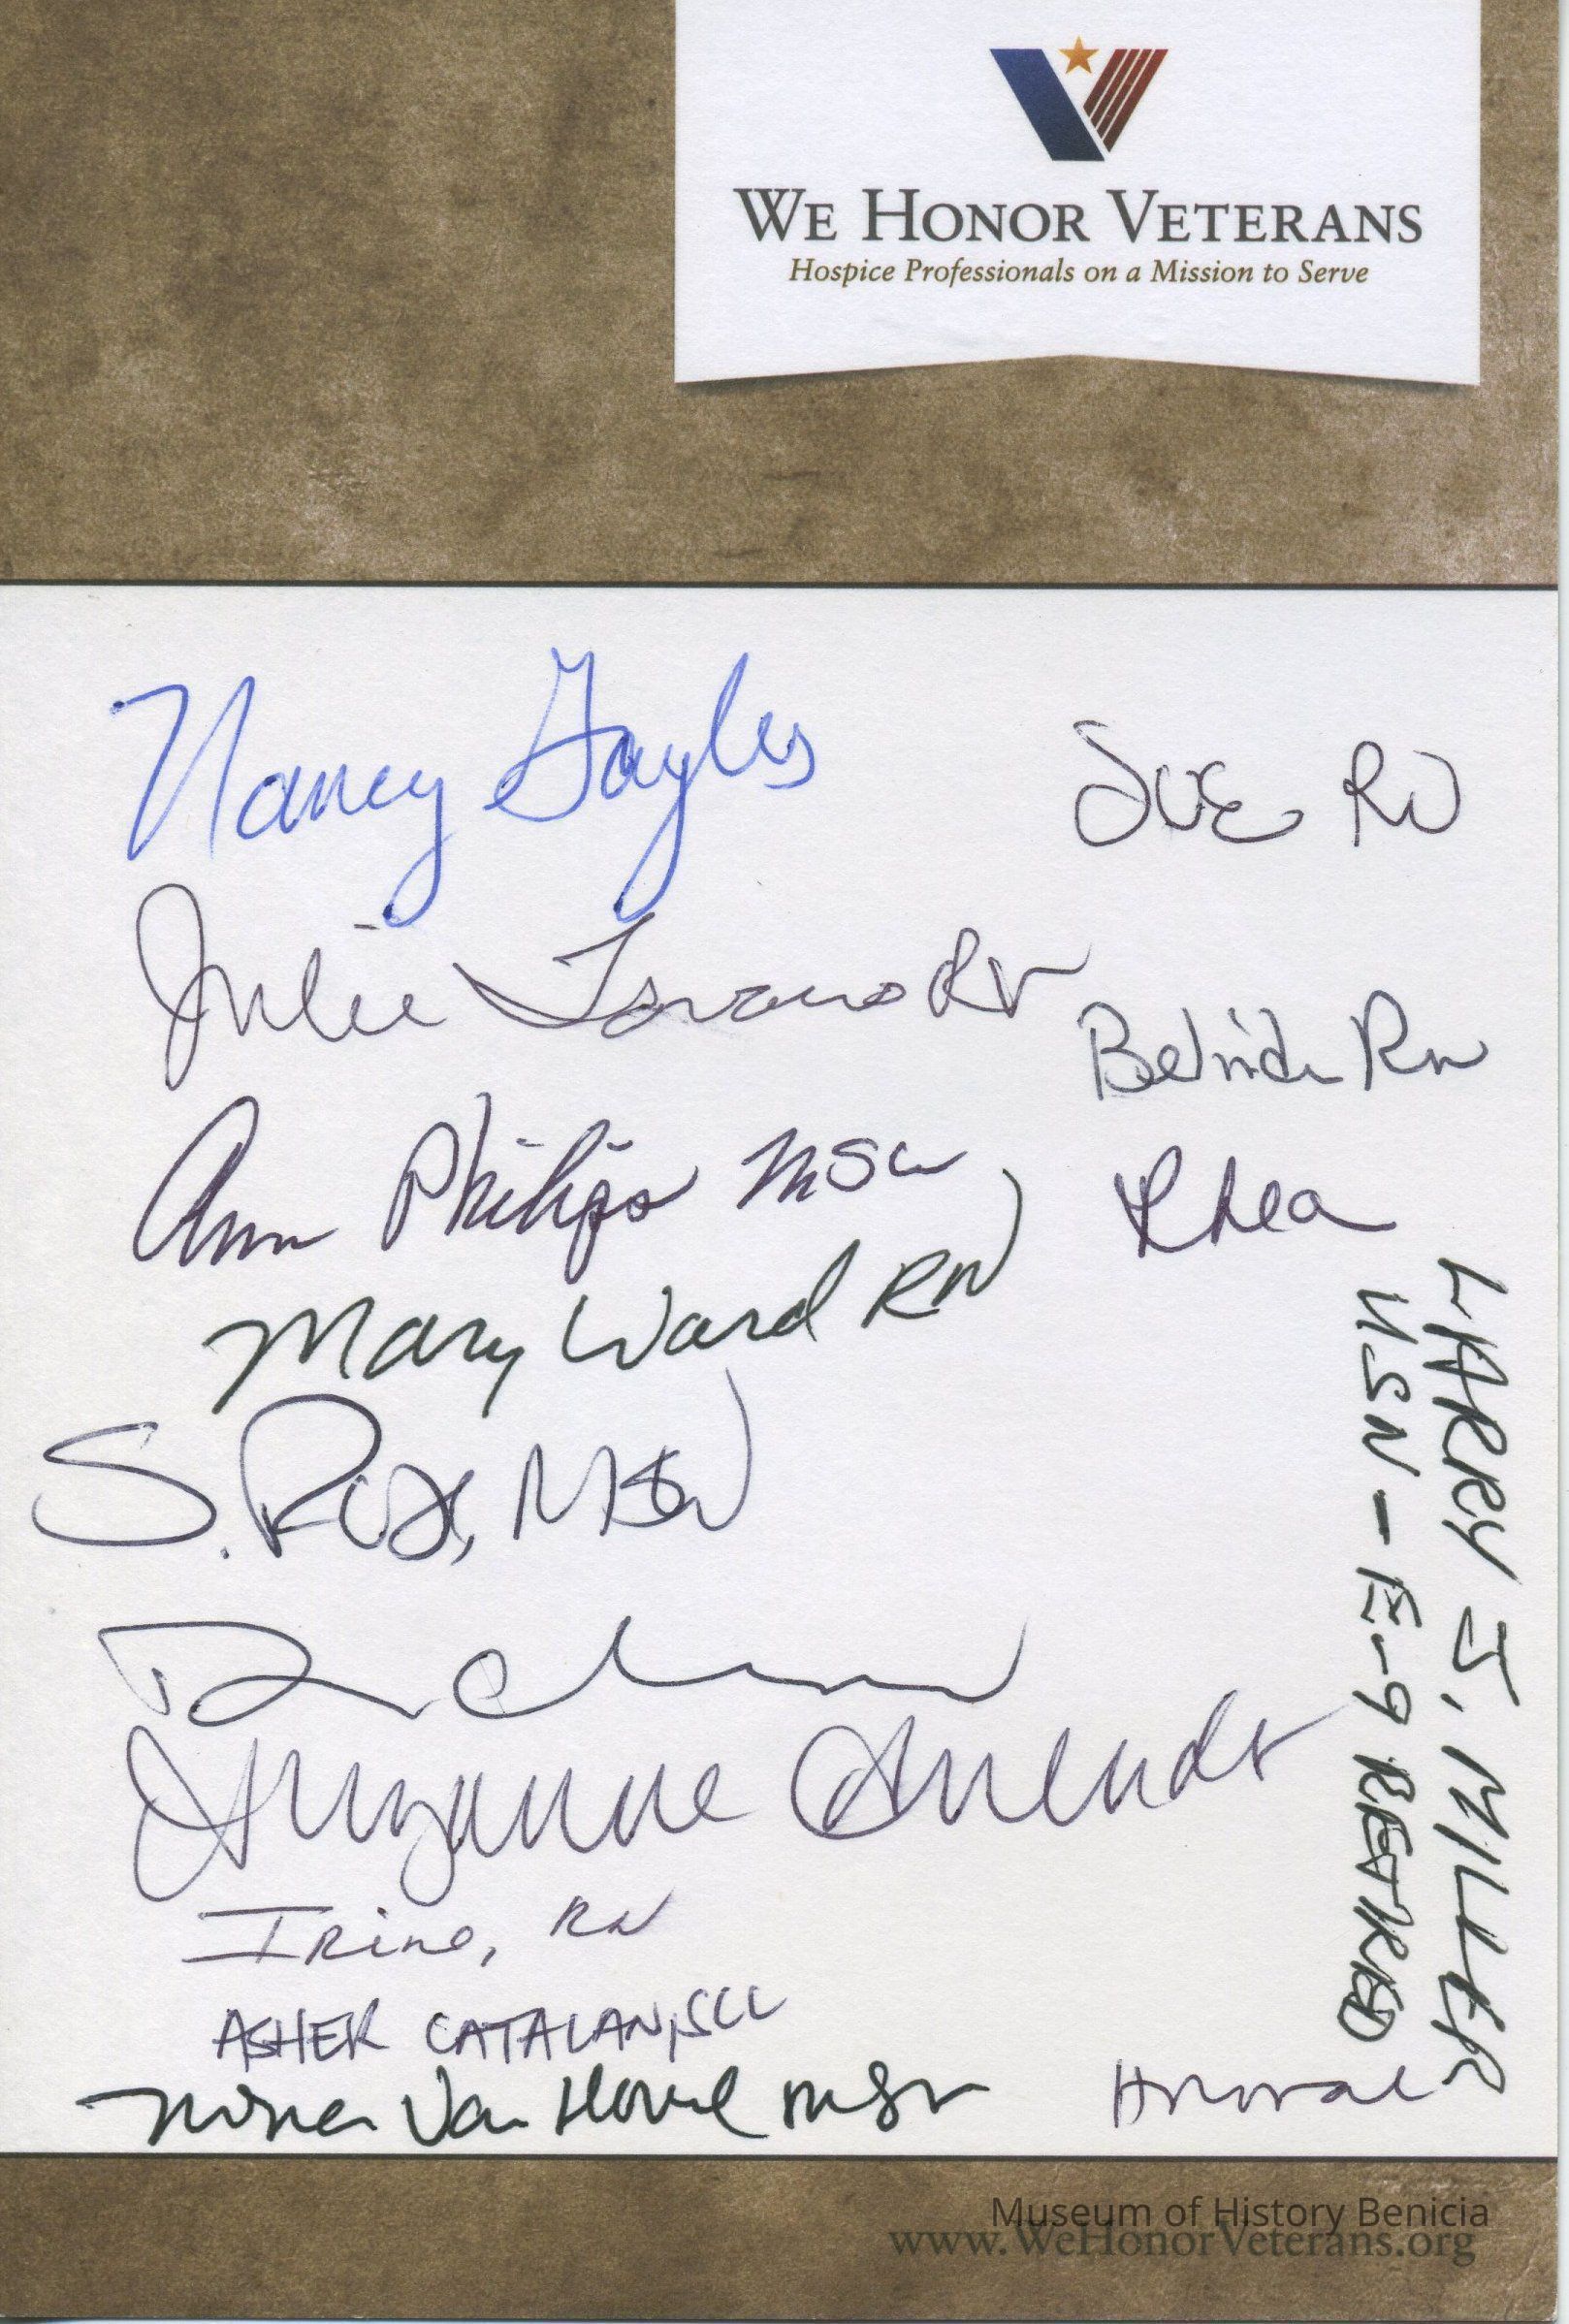 WE HONOR VETERANS
Hospice Professionals on a Mission to Serve
Nancy Gayles
SUE RN
Julie RN
Belinda RN
Ann Phillips MSW
Rhea
Mary Ward RN
S. Rux, MSW
Suzanne Arendt
Irine, RN
ASHER CATALAN, SCC
Van MSW
LARRY J. MILLER
USN - E-9 RETIRED
Museum of History Benicia
www.WeHonorVeterans.org